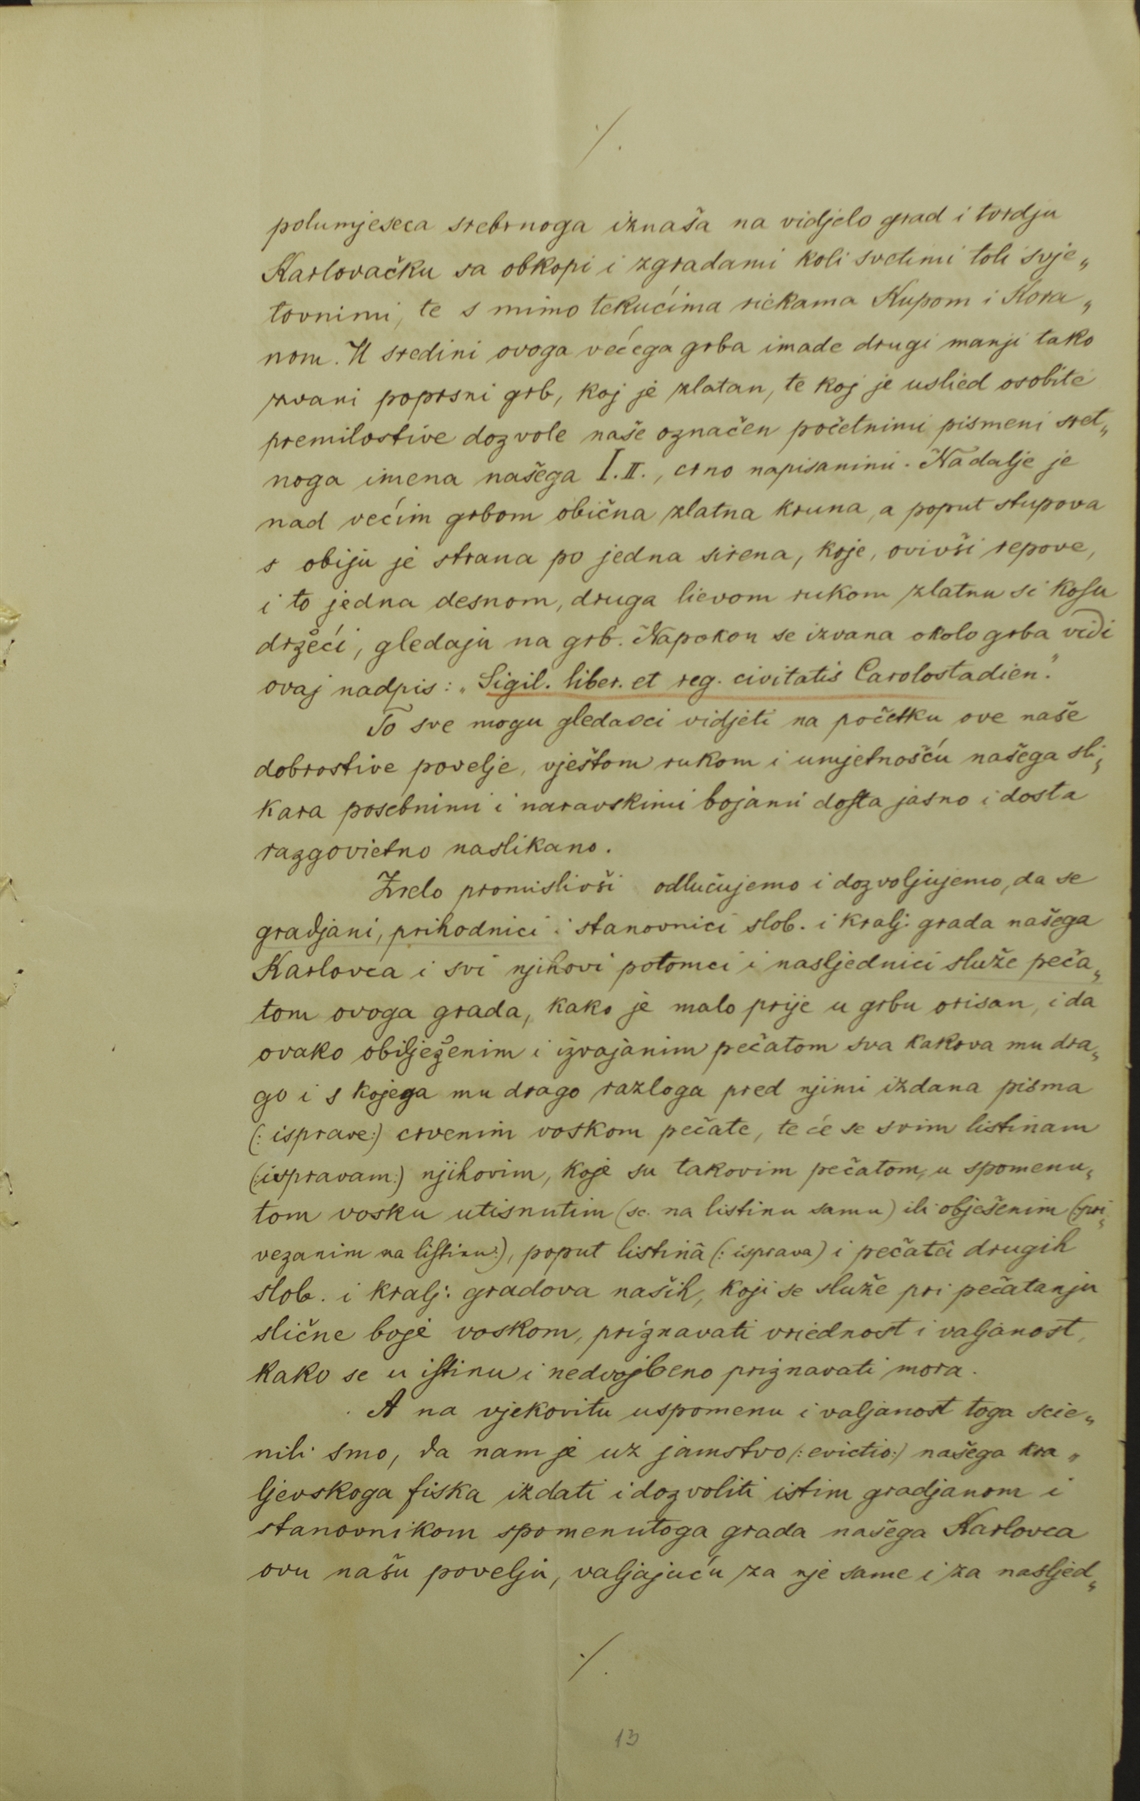 ./.
polumjeseca srebrnoga iznaša na vidjelo grad i tvrdju
Karlovačku sa obkopi i zgradami koli svetimi toli svje„
tovnimi, te s mimo tekućima riekama Kupom i Kora„
nom. U sredini ovoga većega grba imade drugi manji tako
zvani poprsni grb, koj je zlatan, te koj je uslied osobite
premilostive dozvole naše označen početnimi pismeni sret„
noga imena našega I. II., crno napisanimi. Nadalje je
nad većim grbom obična zlatna kruna, a poput stupova
s obiju je strana po jedna sirena, koje, ovivši repove,
i to jedna desnom, druga lievom rukom zlatnu si kosu
držeći, gledaju na grb. Napokon se izvana okolo grba vidi
ovaj nadpis: „Sigil. liber. et reg. civitatis Carolostadien."
To sve mogu gledaoci vidjeti na početku ove naše
dobrostive povelje, vještom rukom i umjetnošću našega sli„
kara posebnimi i naravskimi bojami dosta jasno i dosta
razgovietno naslikano.
Zrelo promislivši odlučujemo i dozvoljujemo, da se
gradjani, prihodnici i stanovnici slob. i kralj. grada našega
Karlovca i svi njihovi potomci i nasljednici služe peča„
tom ovoga grada, kako je malo prije u grbu orisan, i da
ovako obilježenim i izvajanim pečatom sva kakova mu dra„
go i s kojega mu drago razloga pred njimi izdana pisma
(: isprave:) crvenim voskom pečate, te će se svim listinam
(:ispravam:) njihovim, koje su takovim pečatom, u spomenu„
tom vosku utisnutim (sc. na listinu samu) ili obješenim (pri„
vezanim na listinu:), poput listinâ (: isprava) i pečatâ drugih
slob. i kralj. gradova naših, koji se služe pri pečatanju
slične boje voskom, priznavati vriednost i valjanost,
kako se u istinu i nedvojbeno priznavati mora.
A na vjekovitu uspomenu i valjanost toga scie„
nili smo, da nam je uz jamstvo (: evictio:) našega kra„
ljevskoga fiska izdati i dozvoliti istim gradjanom i
stanovnikom spomenutoga grada našega Karlovca
ovu našu povelju, valjajuću za nje same i za nasljed„
./.
13